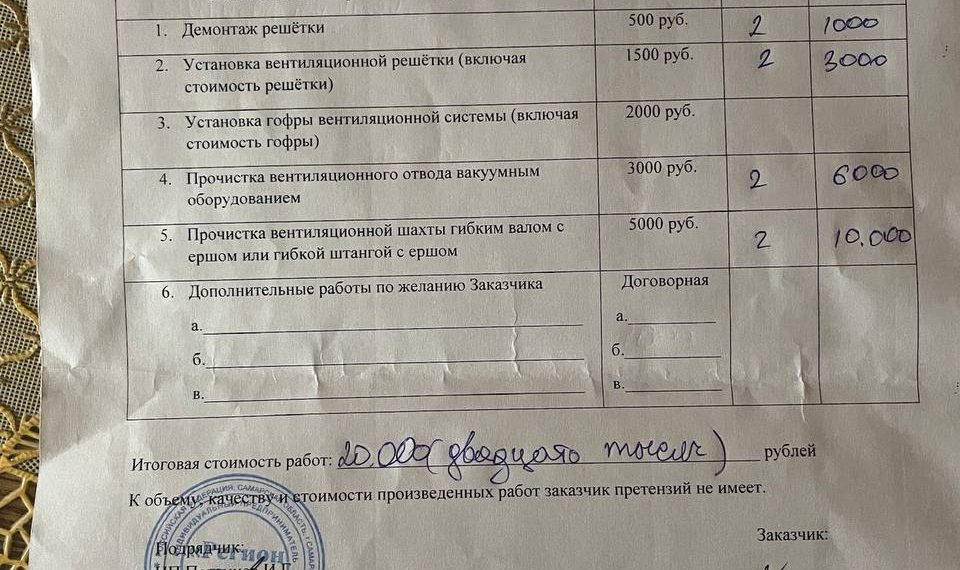 1. Демонтаж решётки 500 руб. 2 1000
2. Установка вентиляционной решётки (включая 1500 руб. 2 3000
стоимость решётки)
3. Установка гофры вентиляционной системы (включая 2000 руб.
стоимость гофры)
4. Прочистка вентиляционного отвода вакуумным 3000 руб. 2 6000
оборудованием
5. Прочистка вентиляционной шахты гибким валом с 5000 руб. 2 10.000
ершом или гибкой штангой с ершом
6. Дополнительные работы по желанию Заказчика Договорная
а. а.
б. б.
в. в.
Итоговая стоимость работ: 20.000 (двадцать тысяч) рублей
К объему, качеству и стоимости произведенных работ заказчик претензий не имеет.
Подрядчик: Заказчик:
ИНДИВИДУАЛЬНЫЙ ПРЕДПРИНИМАТЕЛЬ
Регион